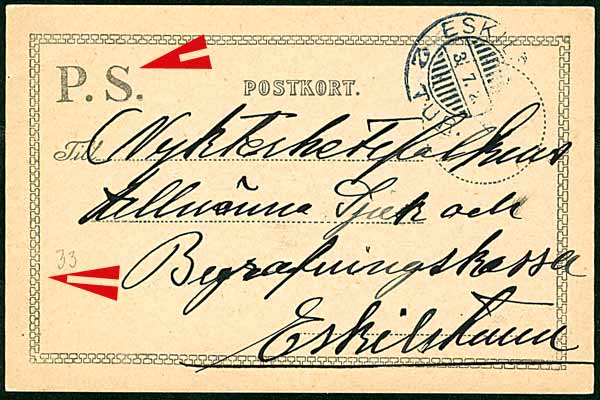 P. S.
POSTKORT.
ESK
3.7.
TUNA
Till Nykterhetsfolkens
Allmänna Sjuk och
33
Begrafningskassa
Eskilstuna